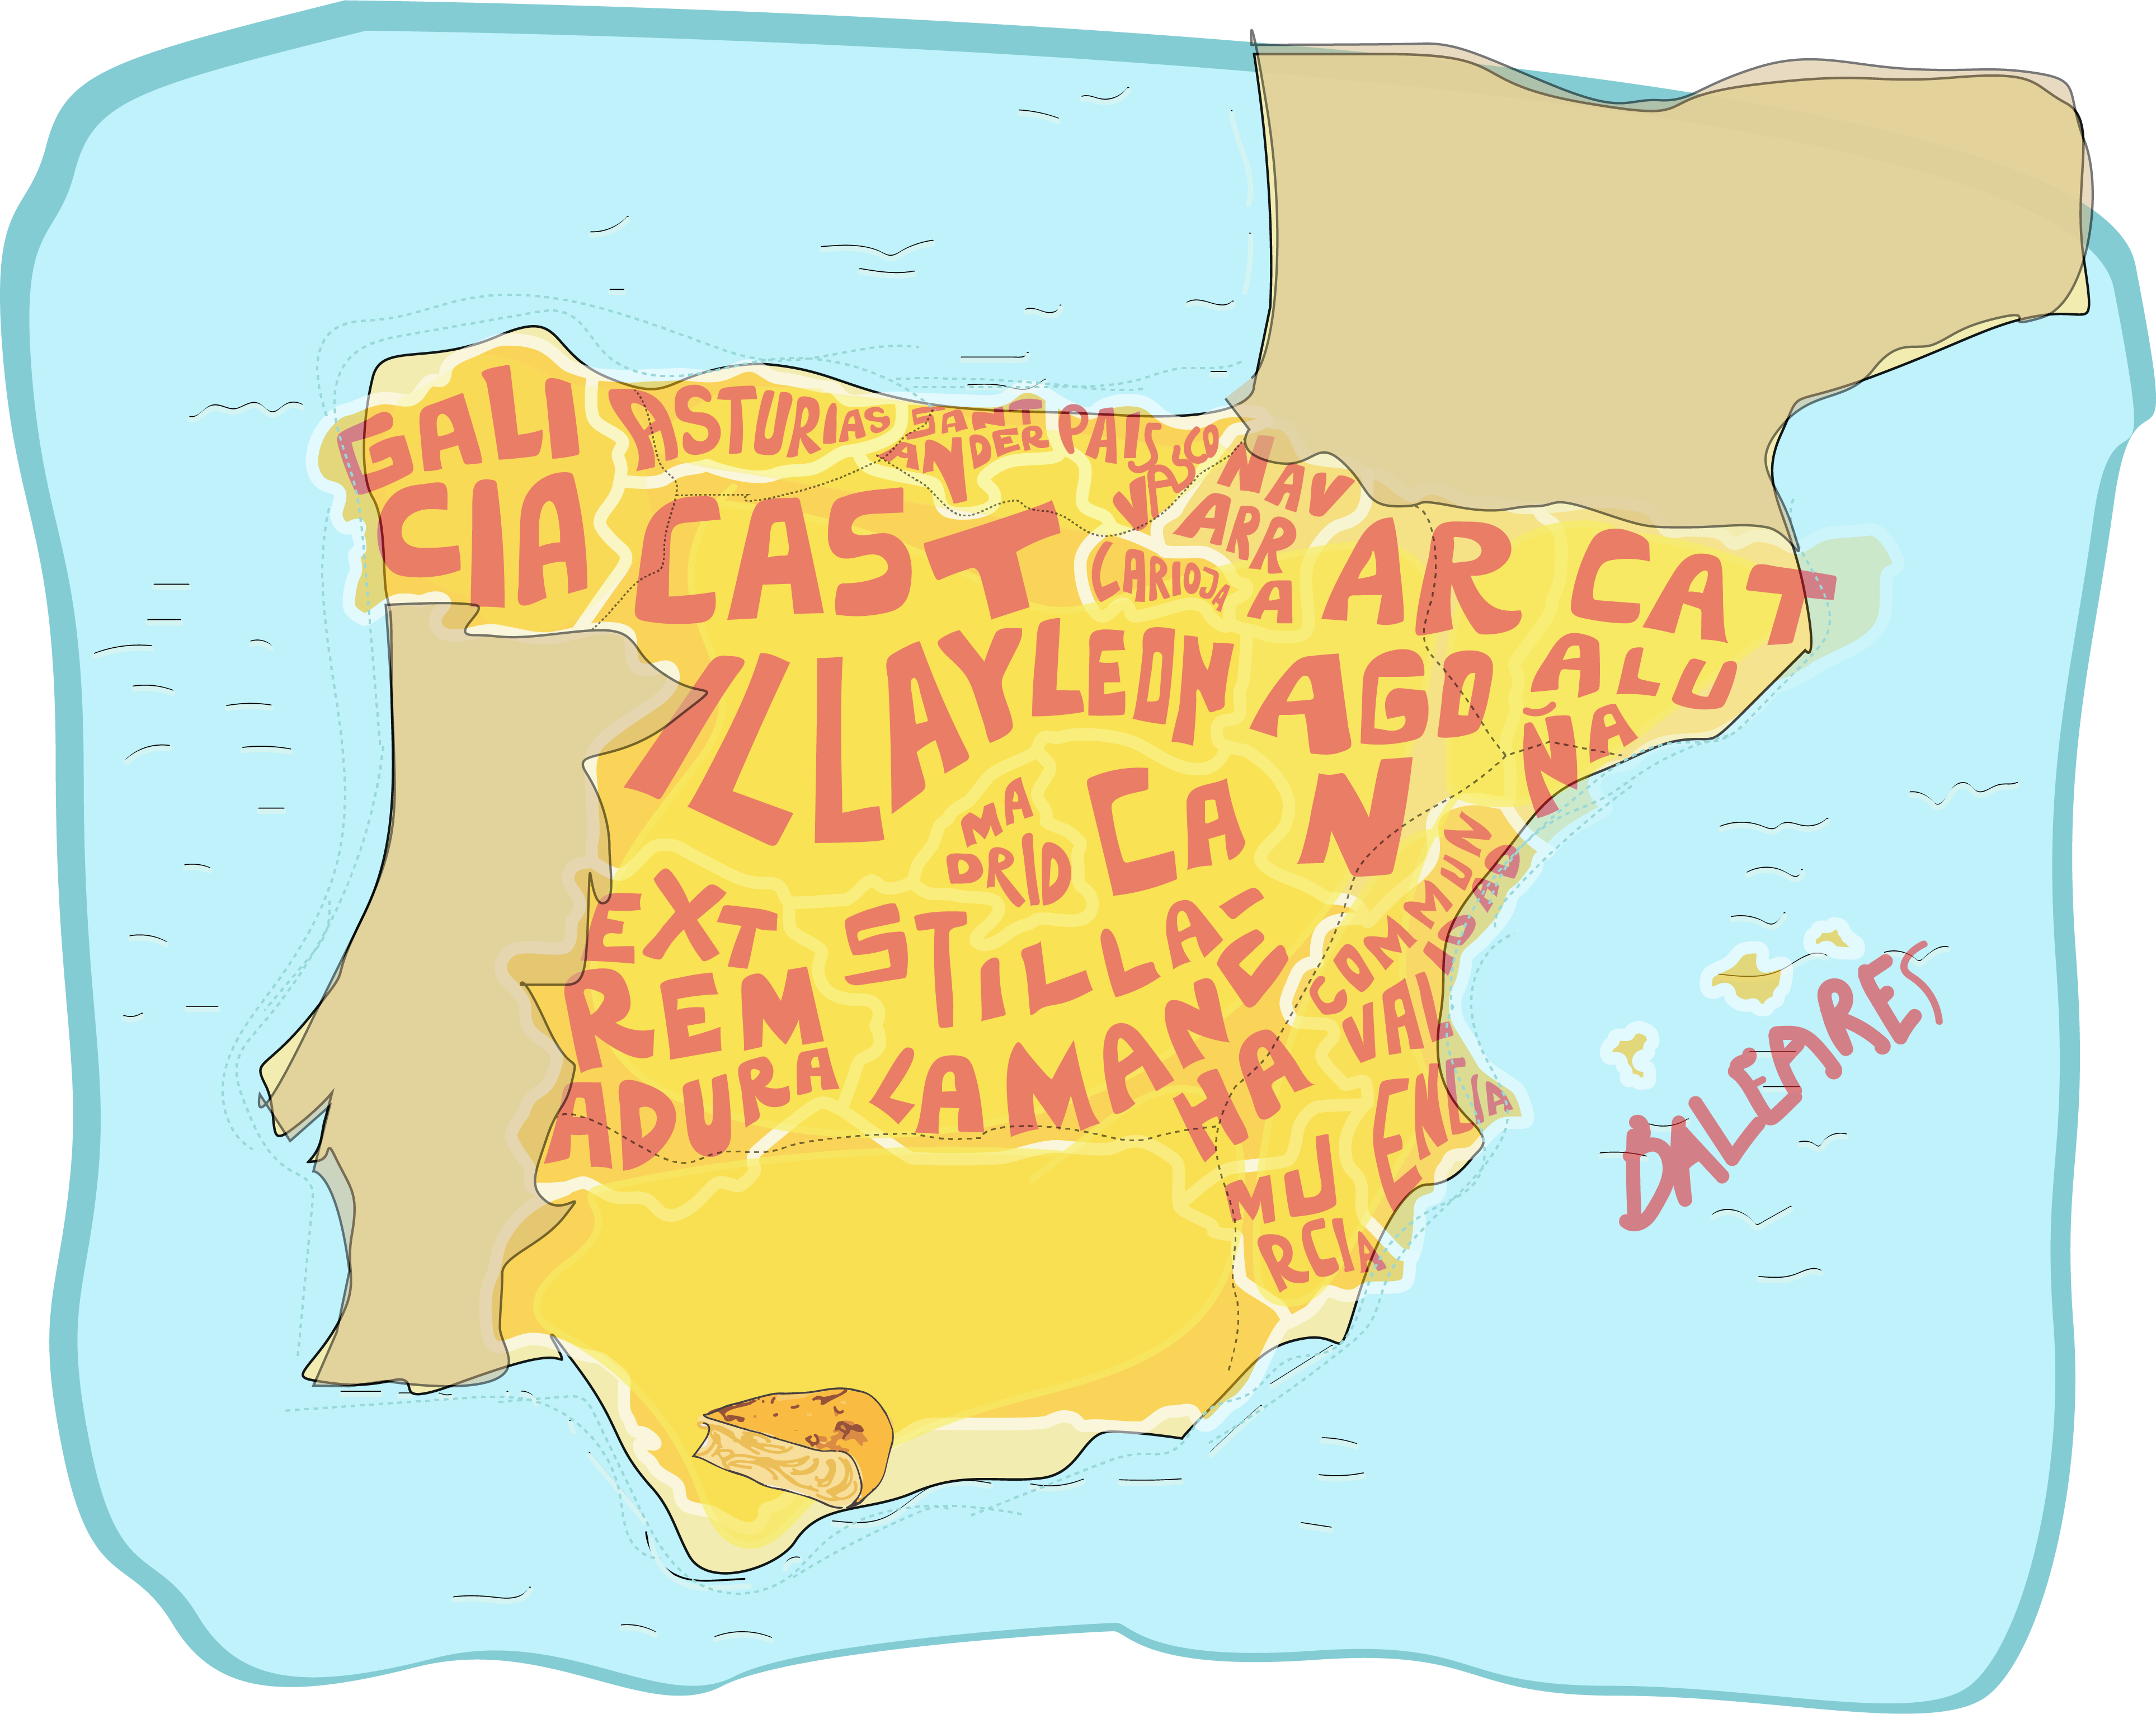 GALI
CIA
ASTURIAS
SANT
ANDER
PAIS
VASCO
NAV
ARR
A
LARIOJA
CAST
ILLAYLEON
ARAGON
CAT
ALU
ÑA
MA
DRID
CA
STILLA-
LAMANCHA
EXT
REM
ADURA
COMMUNIDAD
VALENCIA
MU
RCIA
BALEARES